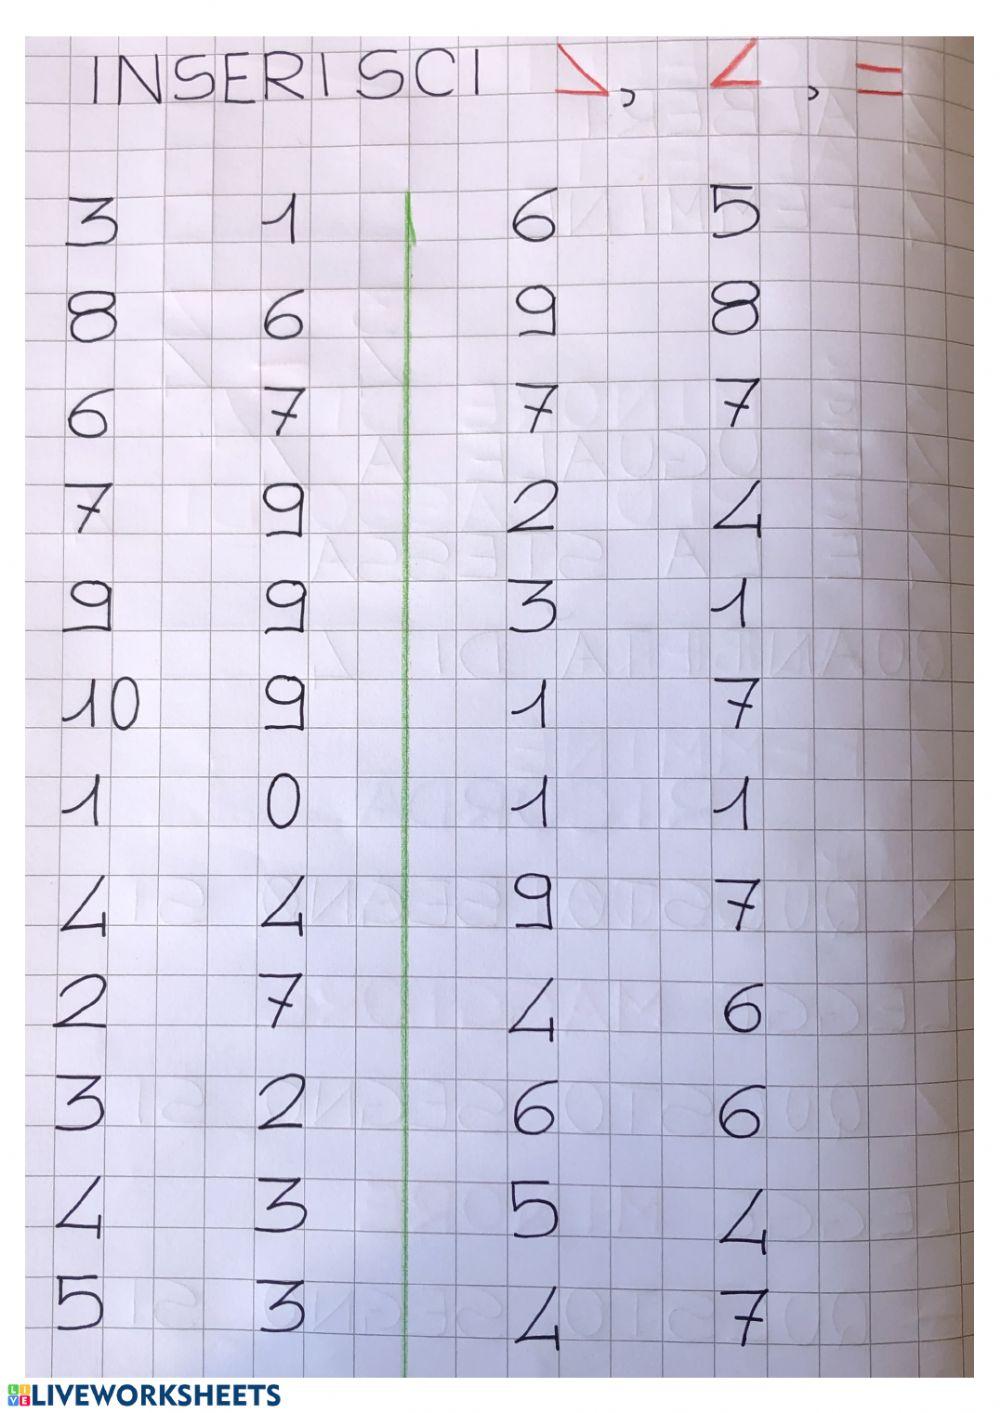 INSERISCI >, <, =
3 1 6 5
8 6 9 8
6 7 7 7
7 9 2 4
9 9 3 1
10 9 1 7
1 0 1 1
4 4 9 7
2 7 4 6
3 2 6 6
4 3 5 4
5 3 4 7
LIVEWORKSHEETS